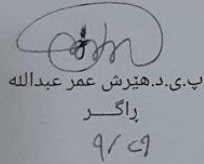 پ.ی.د.هێرش عمر عبدالله
راگـــر
٩/٢٩